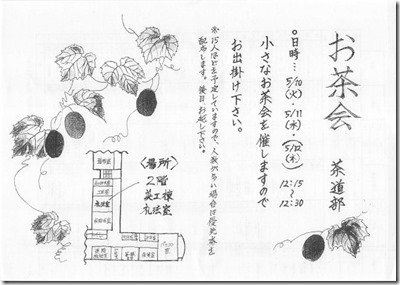 お茶会　茶道部
○日時…5/10(火)・5/11(水)・5/12(木)　12:15〜12:30
小さなお茶会を催しますので
お出掛け下さい。
※15人ほどを予定していますので、人数が多い場合は整理券を
配布します。後日、お越し下さい。
〈場所〉
2階
美工棟
礼法室
礼法室